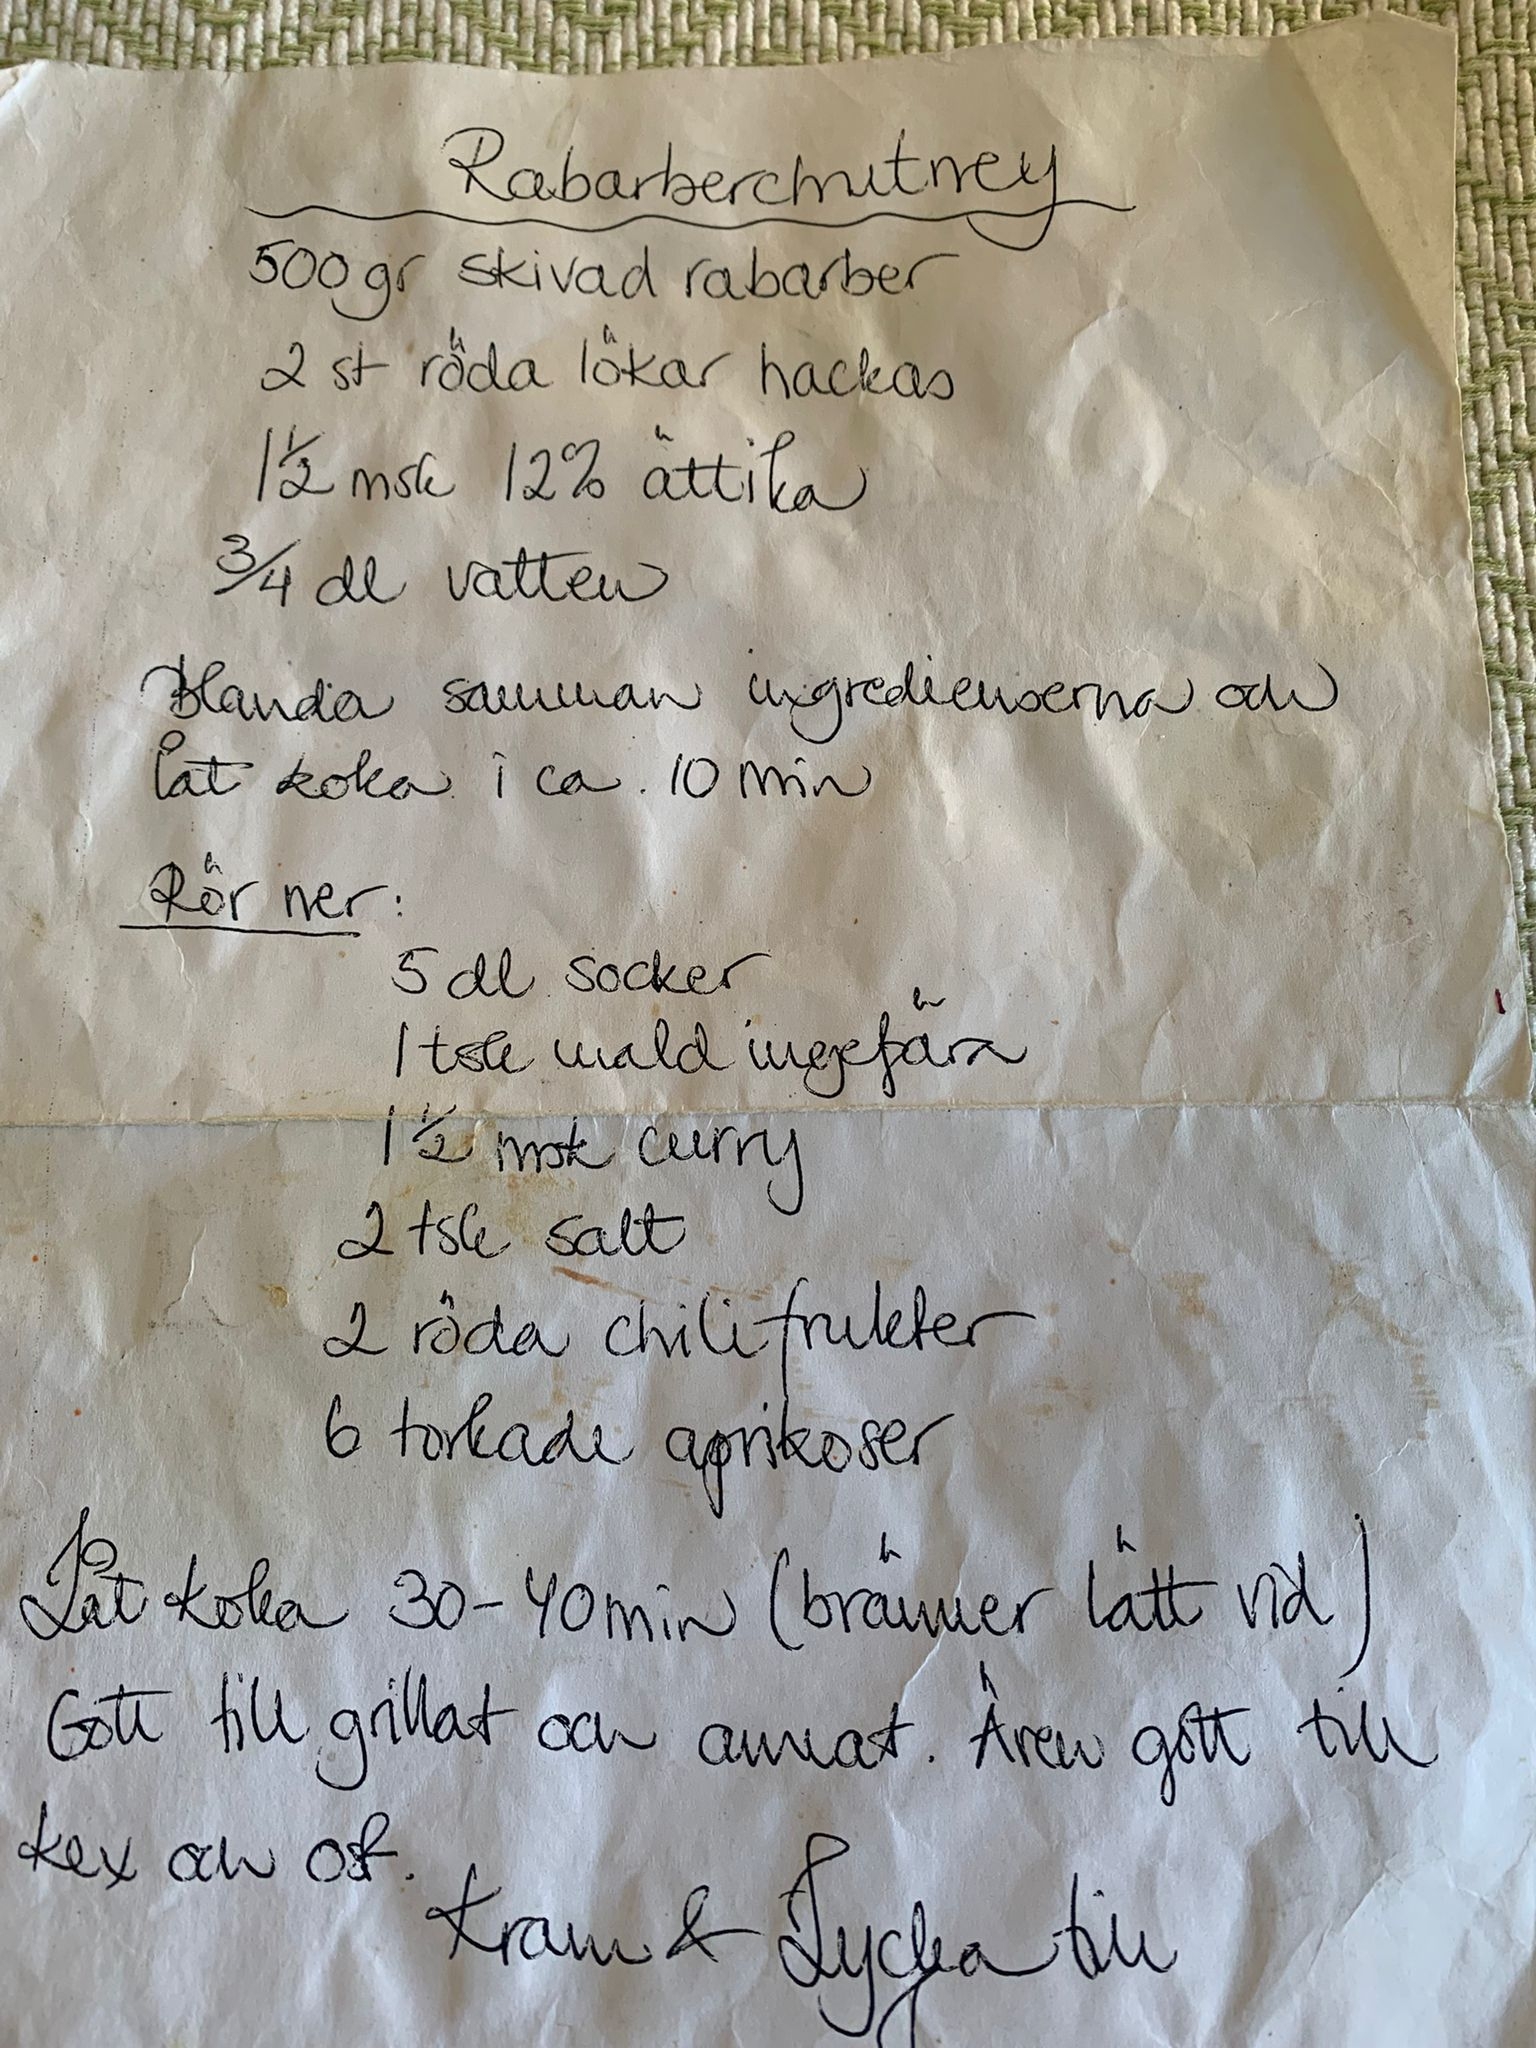 Rabarberchutney
500 gr skivad rabarber
2 st röda lökar hackas
1 1/2 msk 12% ättika
3/4 dl vatten
Blanda samman ingredienserna och
låt koka i ca. 10 min
Rör ner:
5 dl socker
1 tsk mald ingefära
1 1/2 msk curry
2 tsk salt
2 röda chilifrukter
6 torkade aprikoser
Låt koka 30-40 min (bränner lätt vid)
Gott till grillat och annat. Även gott till
kex och ost.
Kram & Lycka till